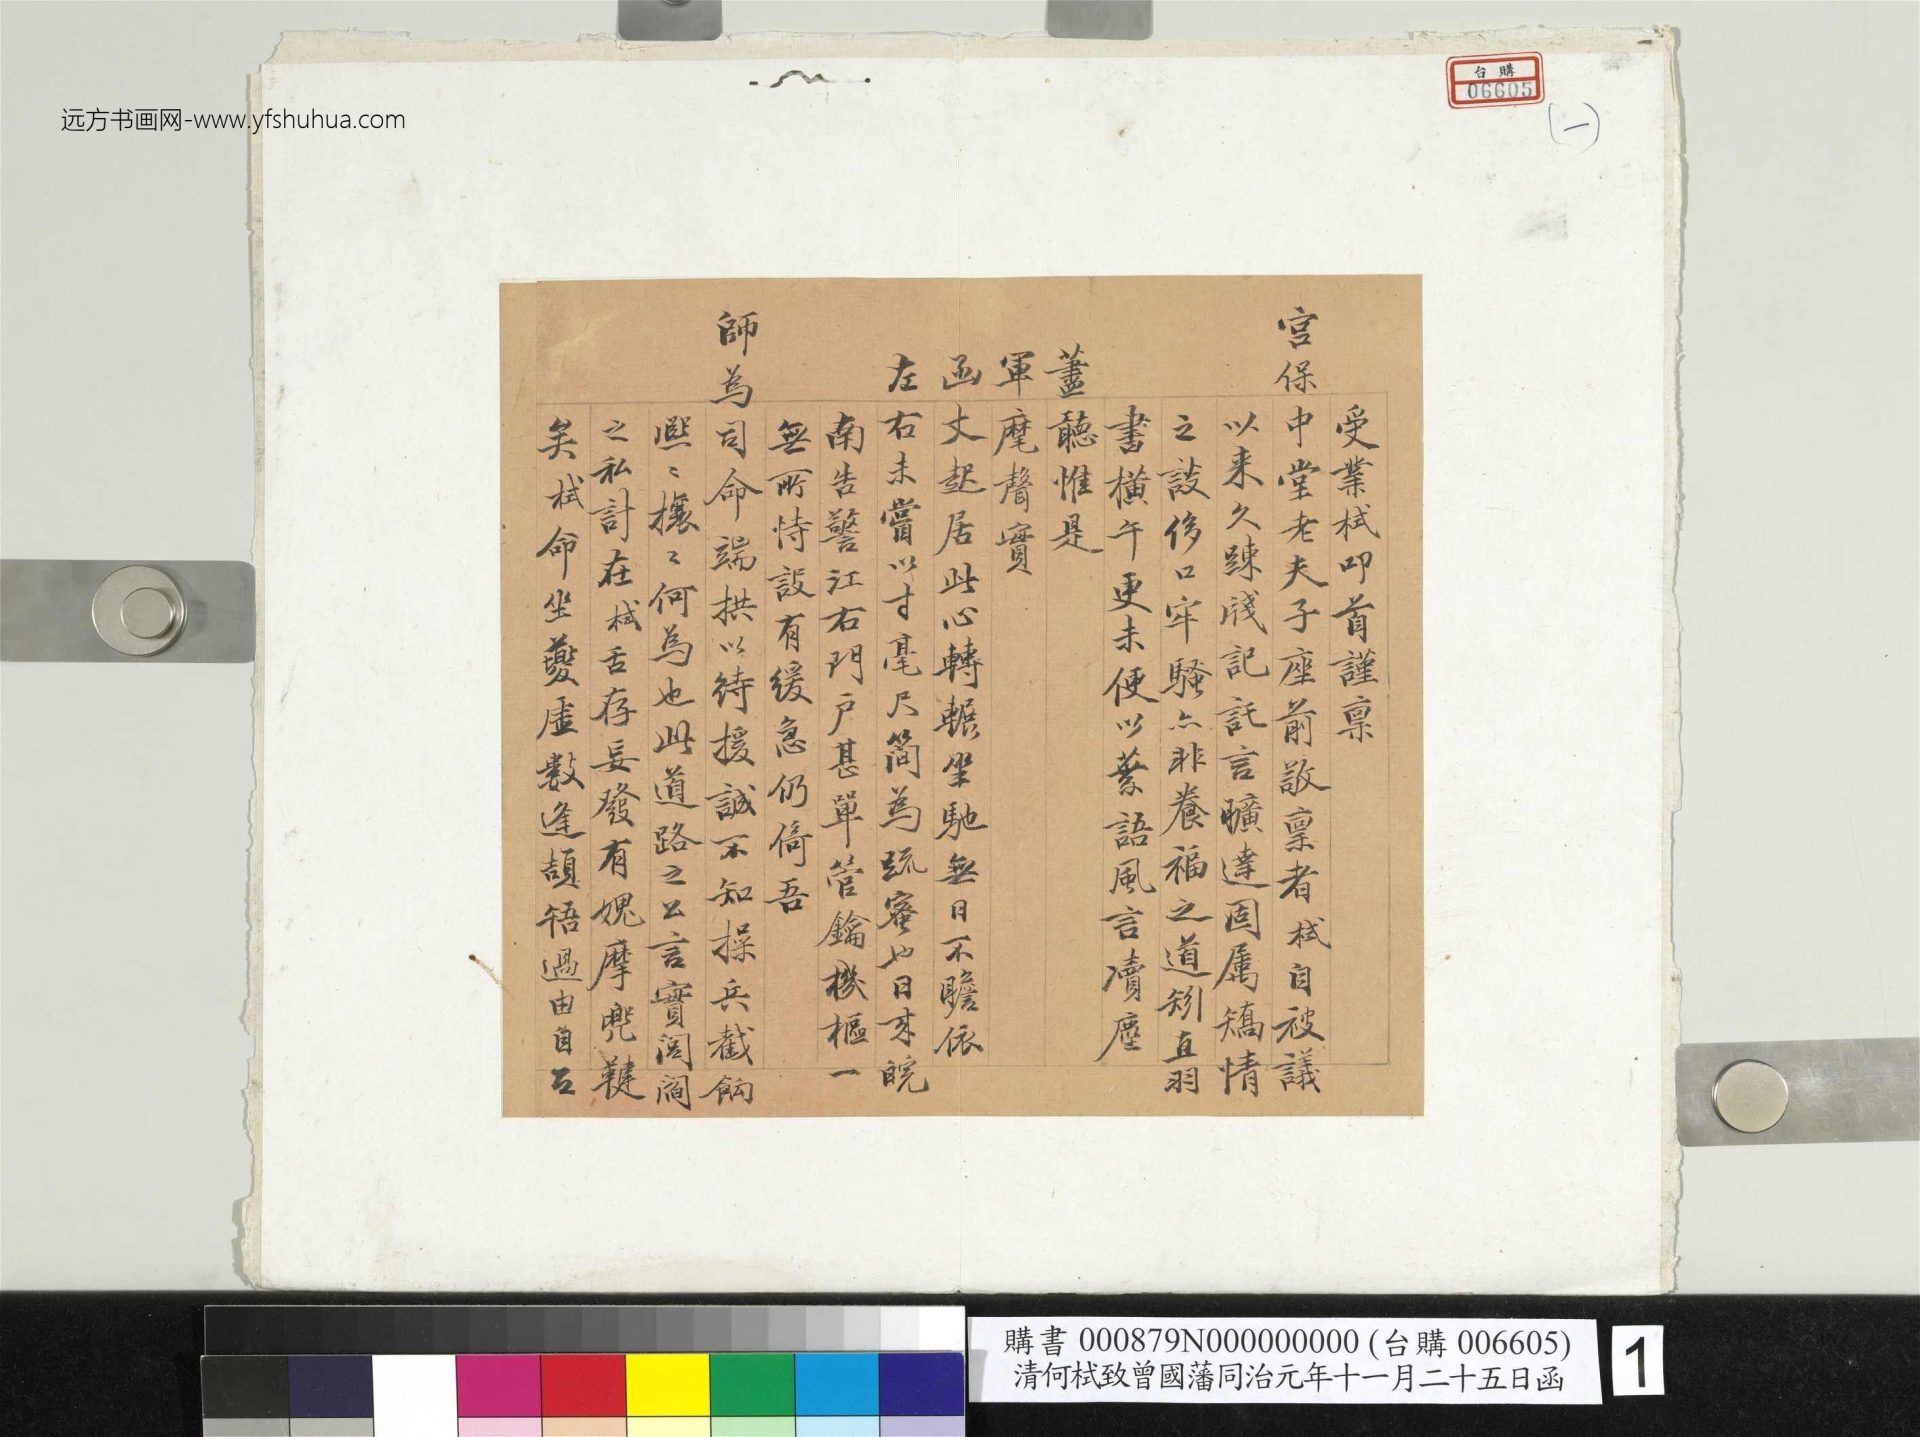 远方书画网-www.yfshuhua.com
台購
06605
(一)
受業栻叩首謹稟
宮保中堂老夫子座前敬稟者栻自被議
以来久踈牋記託言曠達固属矯情
之談侈口牢騷亦非養福之道矧直羽
書橫午更未便以蔡語風言凟塵
藎聽惟是
軍麾聲實
函丈起居此心轉輾坐馳無日不瞻依
左右未嘗以寸毫尺簡為疏密也日来皖
南告警江右門戶甚單管鑰機樞一
無所恃設有緩急仍倚吾
師為司命端拱以待援誠不知操兵截餉
熙〻攘〻何為也此道路之公言實閭閻
之私計在栻舌存妄發有媿摩兜鞬
矣栻命坐虛數逢頡牾過由自召
購書 000879N000000000 (台購 006605)
清何栻致曾國藩同治元年十一月二十五日函
1